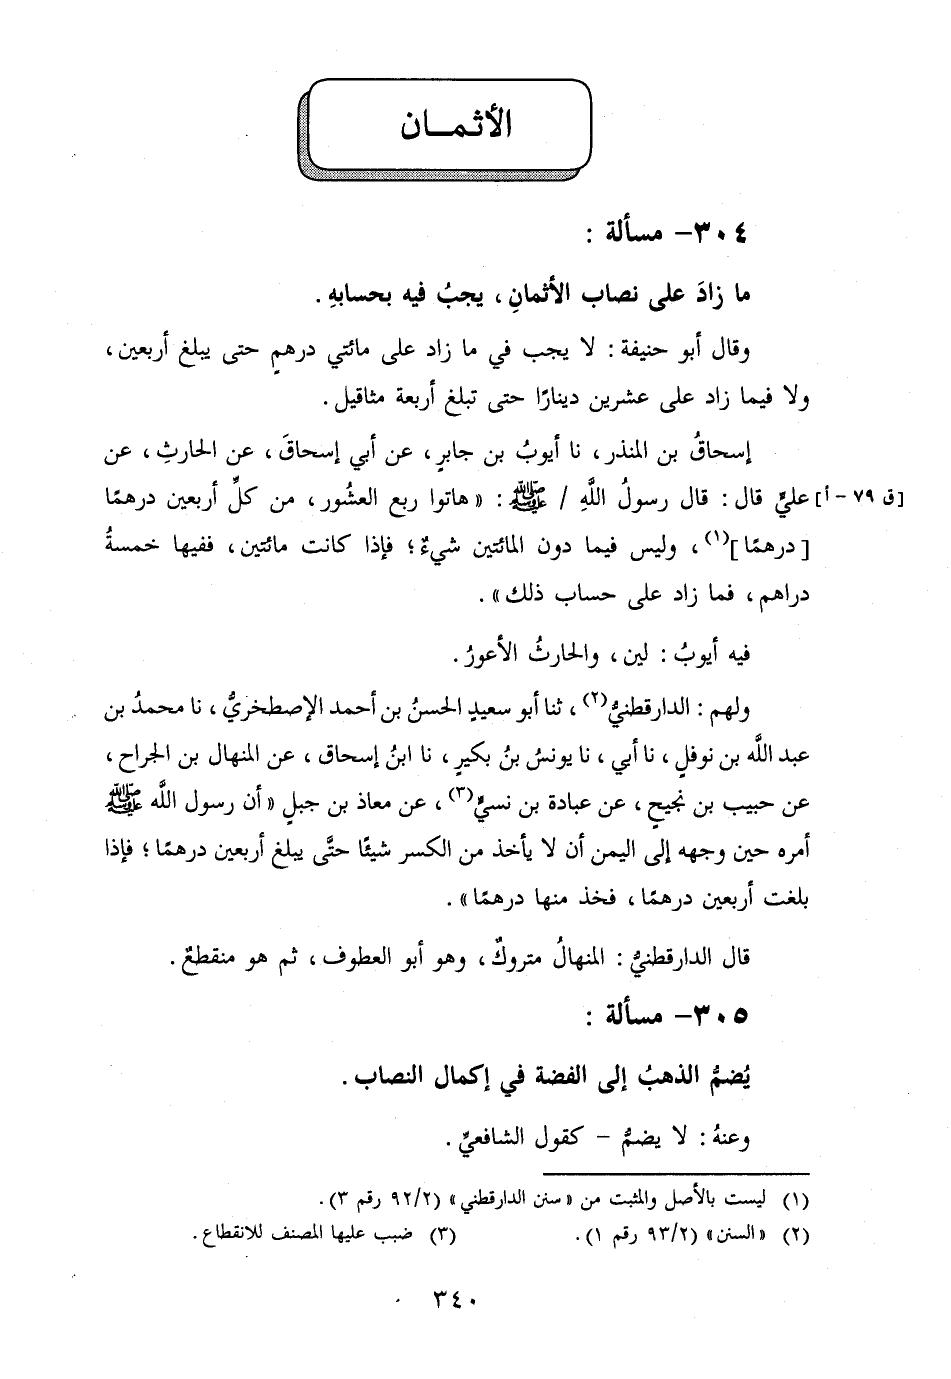 الأثمـــان
٣٠٤- مسألة :
ما زادَ على نصاب الأثمانِ، يجبُ فيه بحسابهِ .
وقال أبو حنيفة : لا يجب في ما زاد على مائتي درهمٍ حتى يبلغ أربعين،
ولا فيما زاد على عشرين دينارًا حتى تبلغ أربعة مثاقيل .
إسحاقُ بن المنذر، نا أيوبُ بن جابرٍ، عن أبي إسحاقَ، عن الحارثِ، عن
[ق ٧٩ - أ] عليٍّ قال : قال رسولُ اللَّهِ / ﷺ : « هاتوا ربع العشُور، من كلِّ أربعين درهمًا
[درهمًا](١)، وليس فيما دون المائتين شيءٌ؛ فإذا كانت مائتين، ففيها خمسةُ
دراهم، فما زاد على حساب ذلك » .
فيه أيوبُ : لين، والحارثُ الأعورُ .
ولهم : الدارقطنيُّ(٢)، ثنا أبو سعيدٍ الحسنُ بن أحمد الإصطخريُّ، نا محمدُ بن
عبد اللَّه بن نوفلٍ، نا أبي، نا يونسُ بنُ بكيرٍ، نا ابنُ إسحاق، عن المنهال بن الجراح،
عن حبيب بن نجيحٍ، عن عبادة بن نسيٍّ(٣)، عن معاذ بن جبلٍ « أن رسول اللَّه ﷺ
أمره حين وجهه إلى اليمن أن لا يأخذ من الكسر شيئًا حتَّى يبلغ أربعين درهمًا؛ فإذا
بلغت أربعين درهمًا، فخذ منها درهمًا » .
قال الدارقطنيُّ : المنهالُ متروكٌ، وهو أبو العطوف، ثم هو منقطعٌ .
٣٠٥- مسألة :
يُضمُّ الذهبُ إلى الفضة في إكمال النصاب .
وعنهُ : لا يضمُّ - كقول الشافعيِّ .
(١) ليست بالأصل والمثبت من « سنن الدارقطني » (٢/ ٩٢ رقم ٣) .
(٢) « السنن » (٢/ ٩٣ رقم ١) . (٣) ضبب عليها المصنف للانقطاع .
٣٤٠